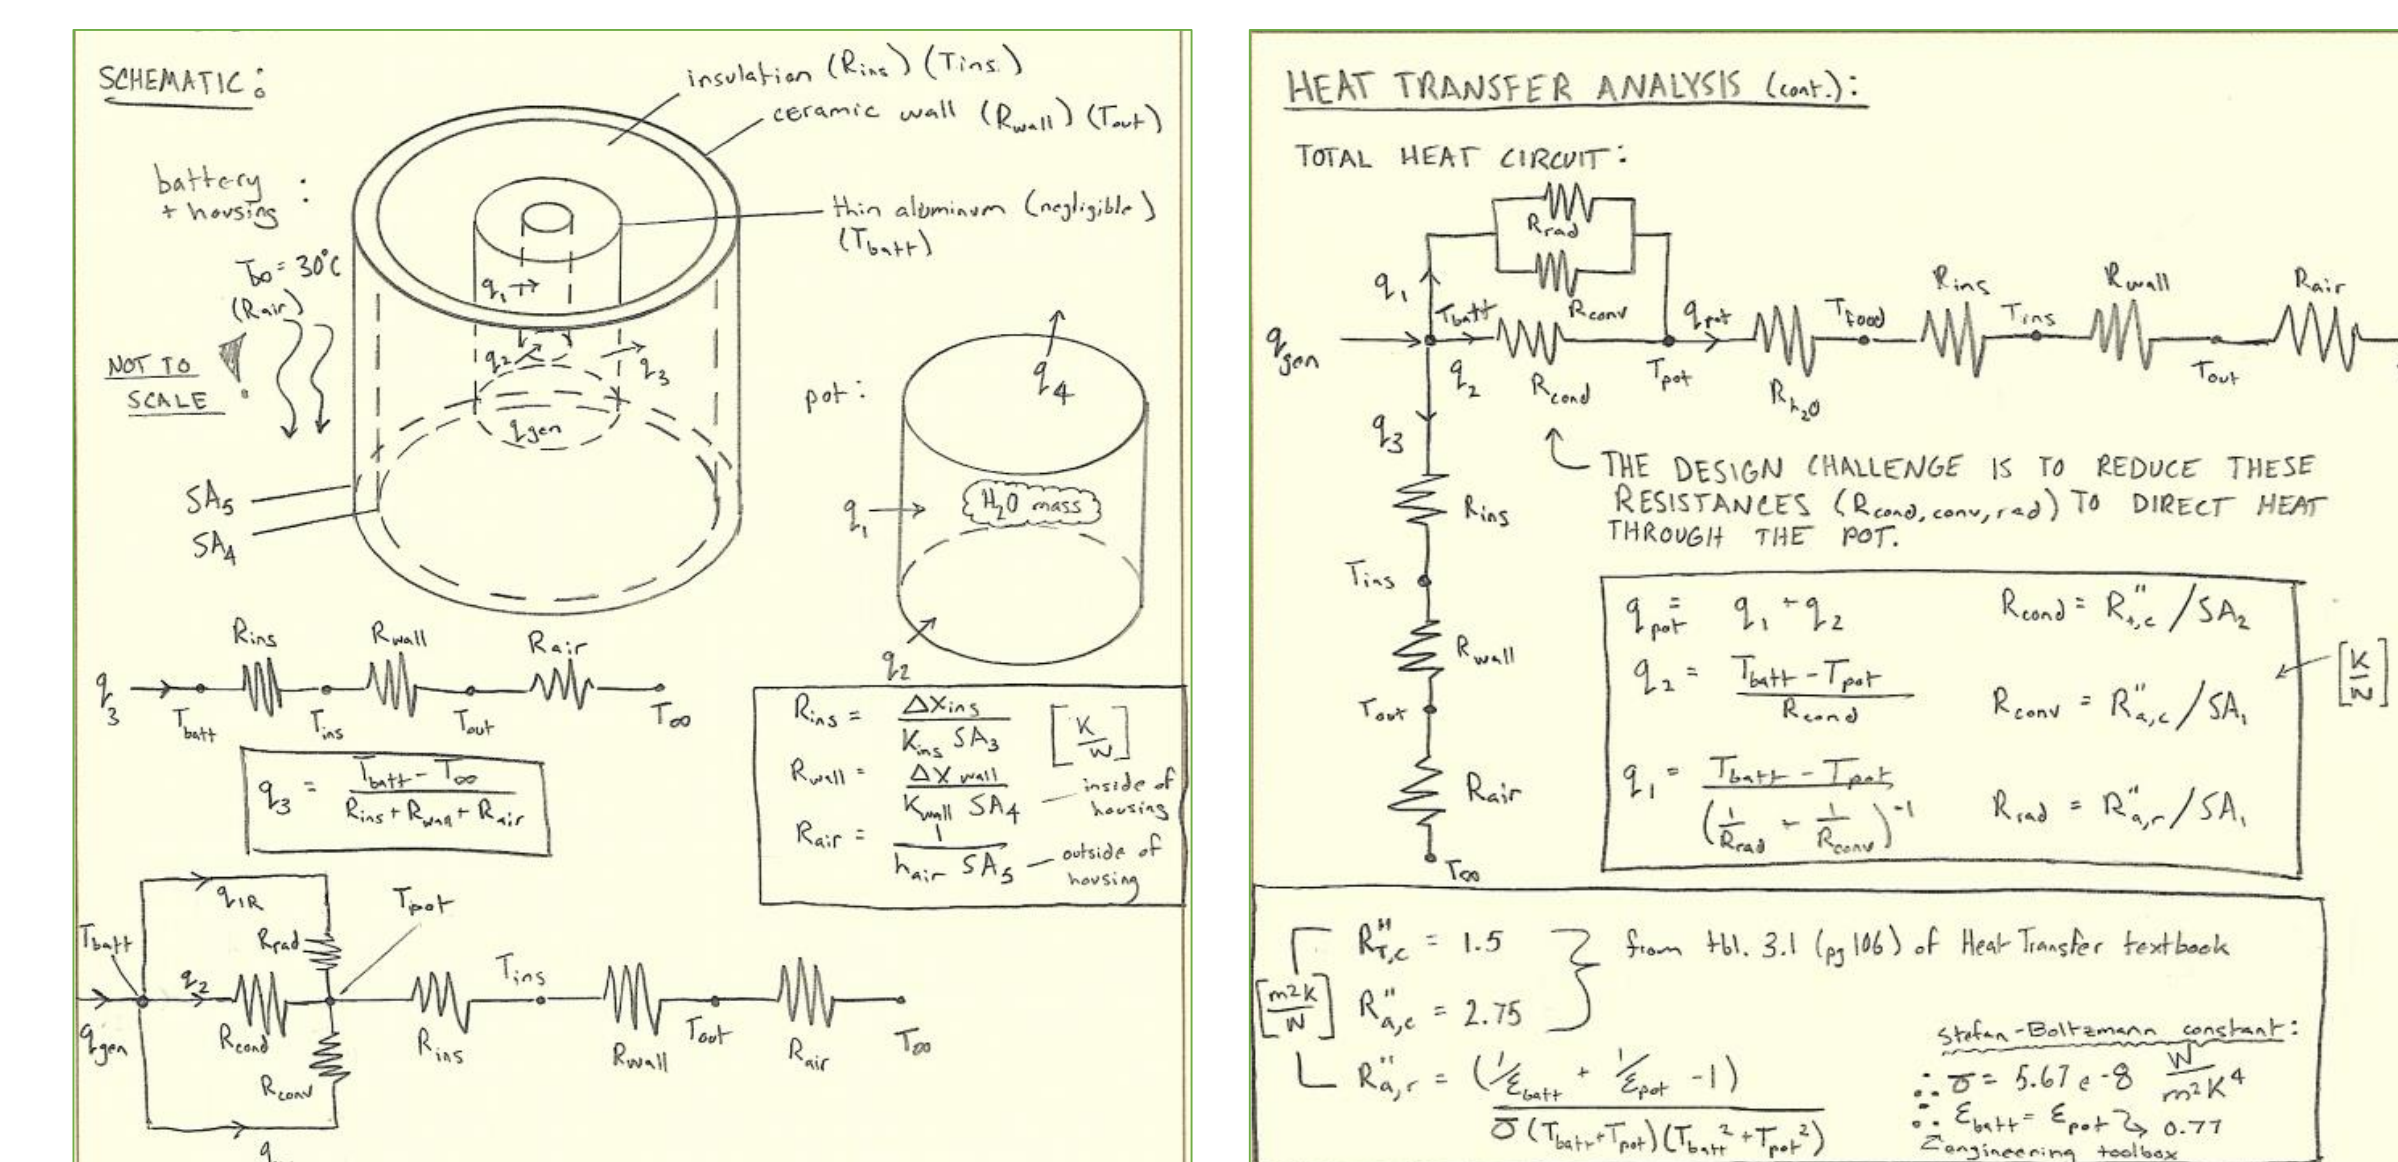 SCHEMATIC:
insulation (Rins) (Tins)
ceramic wall (Rwall) (Tout)
battery
+ housing :
thin aluminum (negligible)
(Tbatt)
T∞ = 30°C
(Rair)
NOT TO
SCALE
q1
q2
q3
qgen
SA5
SA4
pot:
q4
q1
H2O mass
q2
q3
Rins
Rwall
Rair
Tbatt
Tins
Tout
T∞
q3 = Tbatt - T∞ / Rins + Rwall + Rair
Rins = Δxins / Kins SA3 [K/W]
Rwall = Δx wall / Kwall SA4 — inside of
housing
Rair = 1 / hair SA5 — outside of
housing
qIR
Tpot
Tbatt
Rrad
q2
Tins
qgen
Rcond
Rins
Rwall
Tout
Rair
T∞
Rconv
HEAT TRANSFER ANALYSIS (cont.):
TOTAL HEAT CIRCUIT:
Rrad
q1
Rconv
Tbatt
qpot
Tfood
Rins
Tins
Rwall
Rair
qgen
q2
Rcond
Tpot
Rh2O
Tout
q3
THE DESIGN CHALLENGE IS TO REDUCE THESE
RESISTANCES (Rcond, conv, rad) TO DIRECT HEAT
THROUGH THE POT.
Rins
Tins
Rwall
Tout
Rair
T∞
qpot = q1 + q2
Rcond = R"t,c / SA2
q2 = Tbatt - Tpot / Rcond
Rconv = R"a,c / SA1
[K/W]
q1 = Tbatt - Tpot / (1/Rrad + 1/Rconv)-1
Rrad = R"a,r / SA1
R"T,c = 1.5
from tbl. 3.1 (pg 106) of Heat Transfer textbook
[m2K/W]
R"a,c = 2.75
R"a,r = (1/εbatt + 1/εpot -1) / σ(Tbatt+Tpot)(Tbatt2+Tpot2)
Stefan-Boltzmann constant:
∴ σ = 5.67 e-8 W/m2K4
εbatt = εpot 0.77
engineering toolbox